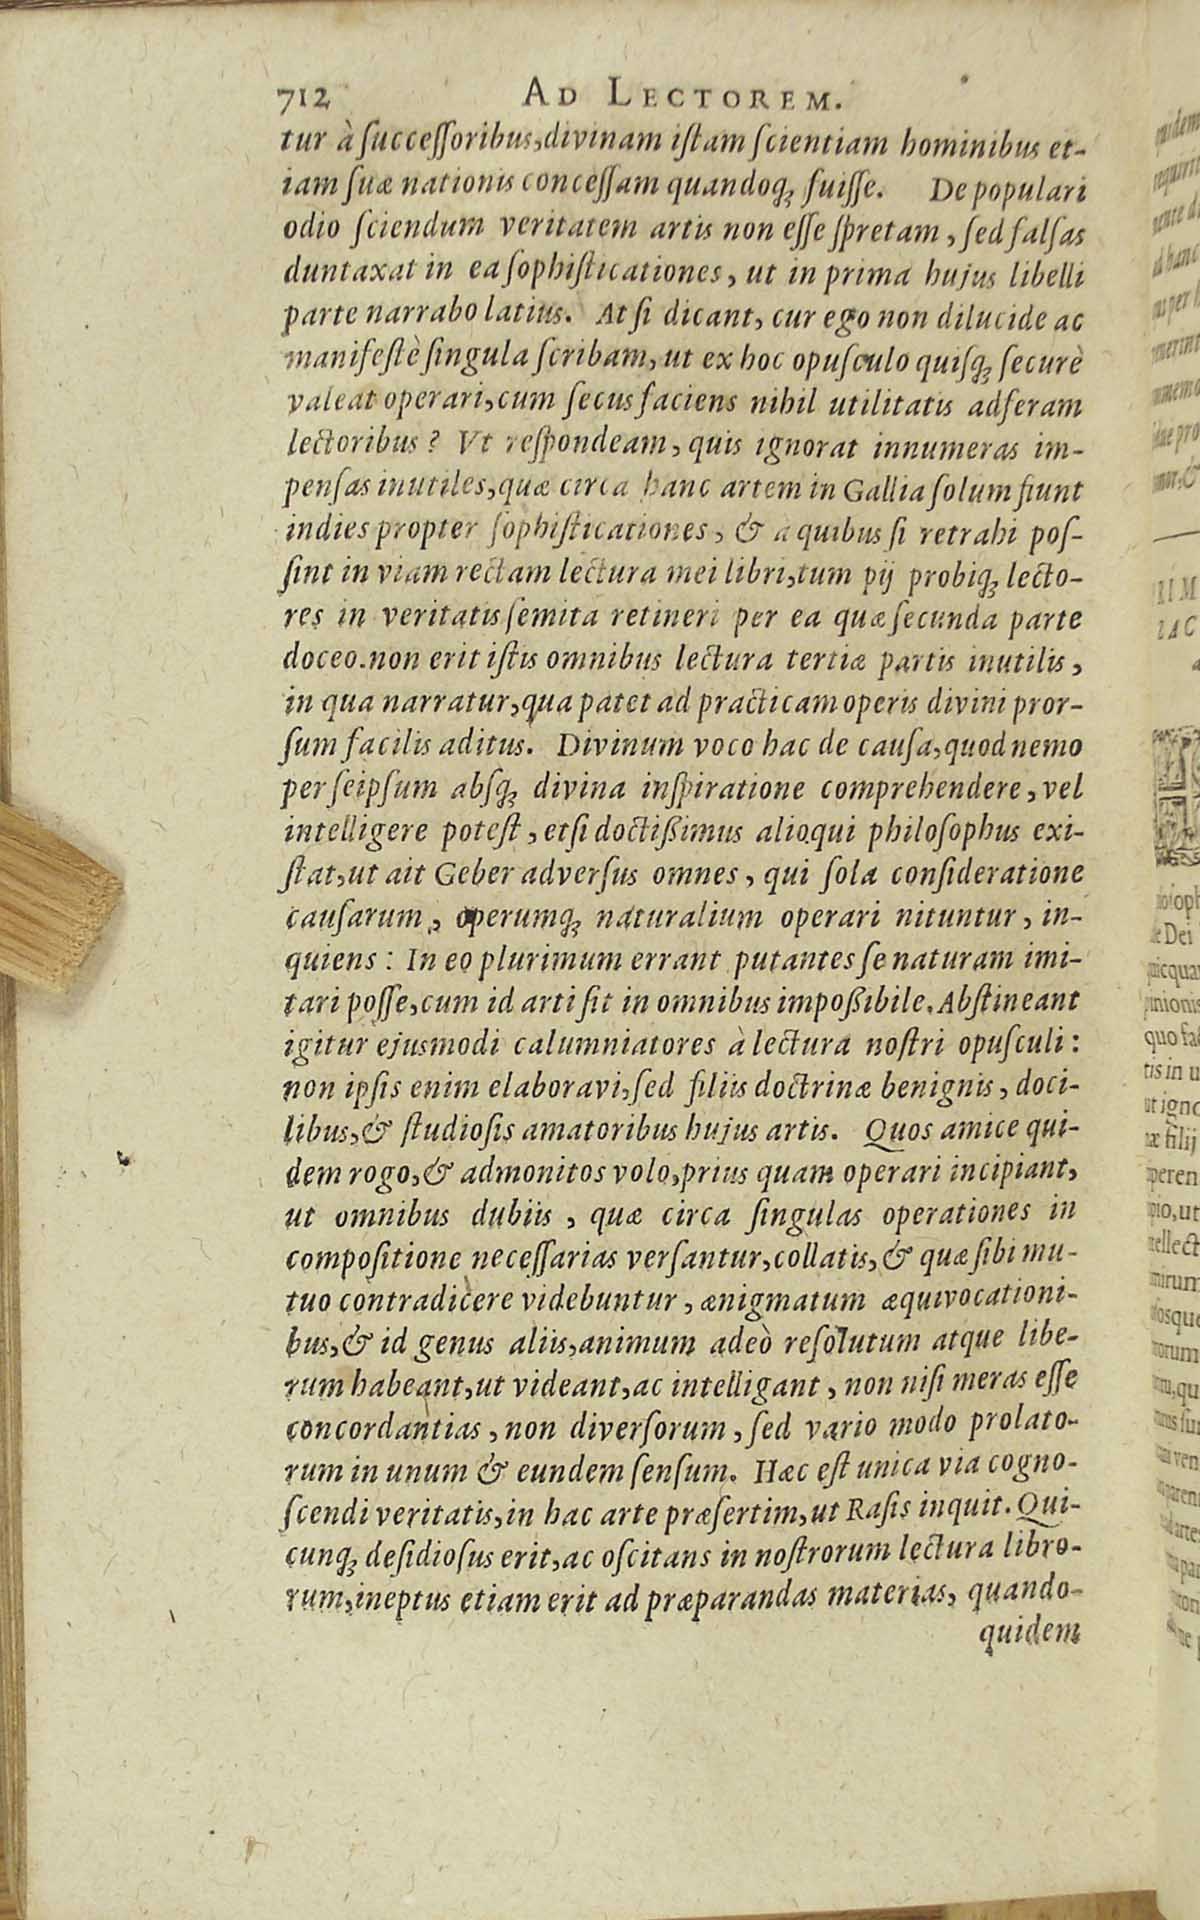 712 AD LECTOREM.
tur à ſucceſſoribus, divinam iſtam ſcientiam hominibus et-
iam ſuæ nationis conceſſam quandoq́ꝫ fuiſſe. De populari
odio ſciendum veritatem artis non eſſe ſpretam, ſed falſas
duntaxat in ea ſophiſticationes, ut in prima hujus libelli
parte narrabo latius. At ſi dicant, cur ego non dilucide ac
manifeſtè ſingula ſcribam, ut ex hoc opuſculo quiſq́ꝫ ſecurè
valeat operari, cum ſecus faciens nihil utilitatis adferam
lectoribus? Vt reſpondeam, quis ignorat innumeras im-
penſas inutiles, quæ circa hanc artem in Gallia ſolum fiunt
indies propter ſophiſticationes, & à quibus ſi retrahi poſ-
ſint in viam rectam lectura mei libri, tum pij probiq́ꝫ lecto-
res in veritatis ſemita retineri per ea quæ ſecunda parte
doceo. non erit iſtis omnibus lectura tertiæ partis inutilis,
in qua narratur, qua patet ad practicam operis divini pror-
ſum facilis aditus. Divinum voco hac de cauſa, quod nemo
per ſeipſum abſq́ꝫ divina inſpiratione comprehendere, vel
intelligere poteſt, etſi doctißimus alioqui philoſophus exi-
ſtat, ut ait Geber adverſus omnes, qui ſola conſideratione
cauſarum, operumq́ꝫ naturalium operari nituntur, in-
quiens: In eo plurimum errant putantes ſe naturam imi-
tari poſſe, cum id arti ſit in omnibus impoßibile. Abſtineant
igitur ejusmodi calumniatores à lectura noſtri opuſculi:
non ipſis enim elaboravi, ſed filiis doctrinæ benignis, doci-
libus, & ſtudioſis amatoribus hujus artis. Quos amice qui-
dem rogo, & admonitos volo, prius quam operari incipiant,
ut omnibus dubiis, quæ circa ſingulas operationes in
compoſitione neceſſarias verſantur, collatis, & quæ ſibi mu-
tuo contradicere videbuntur, ænigmatum æquivocationi-
bus, & id genus aliis, animum adeò reſolutum atque libe-
rum habeant, ut videant, ac intelligant, non niſi meras eſſe
concordantias, non diverſorum, ſed vario modo prolato-
rum in unum & eundem ſenſum. Hæc eſt unica via cogno-
ſcendi veritatis, in hac arte præſertim, ut Raſis inquit. Qui-
cunq́ꝫ deſidioſus erit, ac oſcitans in noſtrorum lectura libro-
rum, ineptus etiam erit ad præparandas materias, quando-
quidem